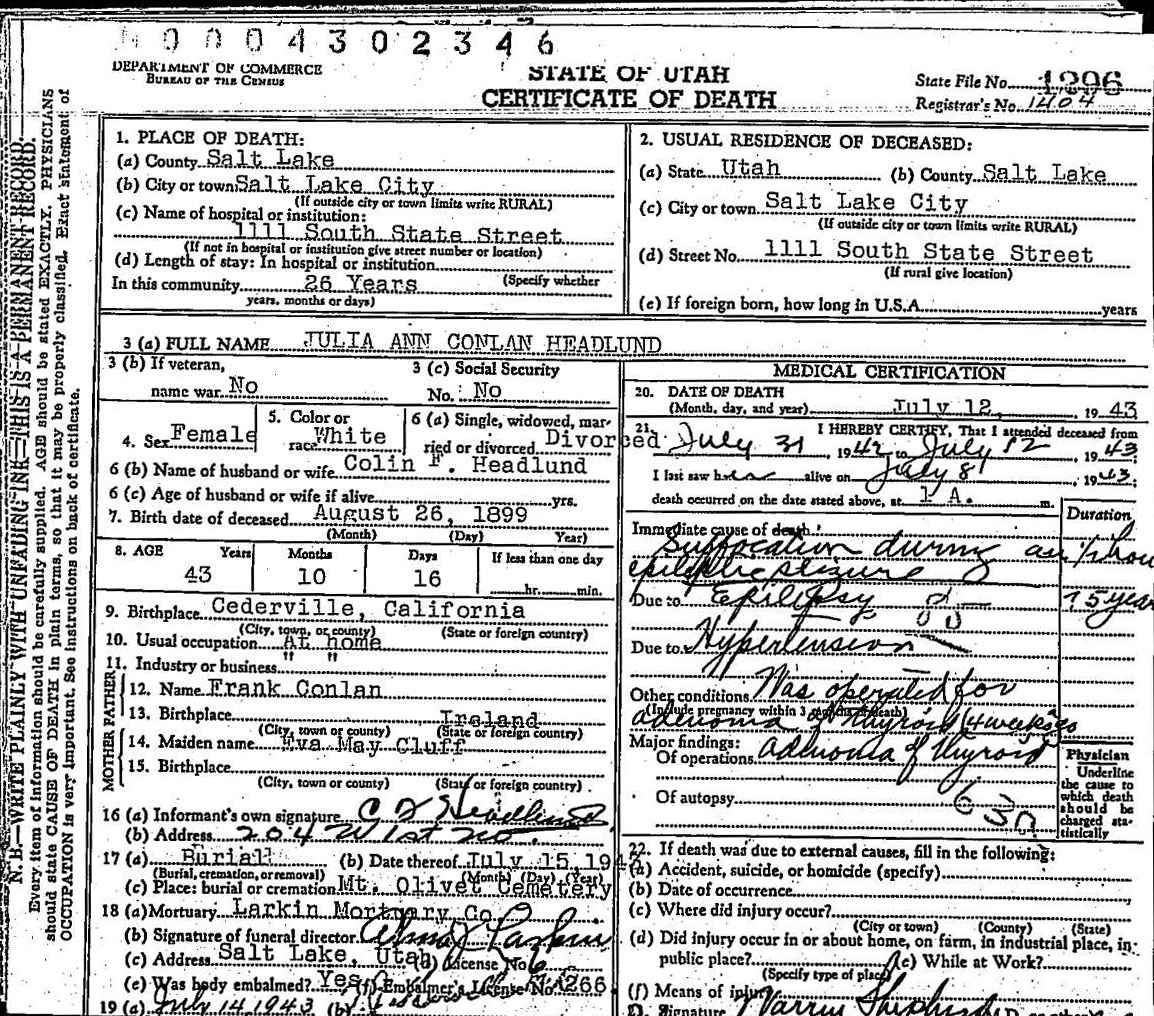 0004302346
DEPARTMENT OF COMMERCE
BUREAU OF THE CENSUS
STATE OF UTAH
CERTIFICATE OF DEATH
State File No. 1296
Registrar's No. 1404
N. B.—WRITE PLAINLY WITH UNFADING INK—THIS IS A PERMANENT RECORD.
Every item of information should be carefully supplied. AGE should be stated EXACTLY. PHYSICIANS
should state CAUSE OF DEATH in plain terms, so that it may be properly classified. Exact statement of
OCCUPATION is very important. See instructions on back of certificate.
1. PLACE OF DEATH:
(a) County Salt Lake
(b) City or town Salt Lake City
(If outside city or town limits write RURAL)
(c) Name of hospital or institution:
1111 South State Street
(If not in hospital or institution give street number or location)
(d) Length of stay: In hospital or institution
(Specify whether
In this community 26 Years
years, months or days)
2. USUAL RESIDENCE OF DECEASED:
(a) State Utah (b) County Salt Lake
(c) City or town Salt Lake City
(If outside city or town limits write RURAL)
(d) Street No. 1111 South State Street
(If rural give location)
(e) If foreign born, how long in U.S.A. years
3 (a) FULL NAME JULIA ANN CONLAN HEADLUND
3 (b) If veteran,
name war No
3 (c) Social Security
No. No
4. Sex Female
5. Color or
race White
6 (a) Single, widowed, mar-
ried or divorced Divorced
6 (b) Name of husband or wife Colin F. Headlund
6 (c) Age of husband or wife if alive yrs.
7. Birth date of deceased August 26, 1899
(Month) (Day) Year)
8. AGE Years Months Days If less than one day
43 10 16 hr. min.
9. Birthplace Cederville, California
(City, town, or county) (State or foreign country)
10. Usual occupation At home
11. Industry or business " "
FATHER
12. Name Frank Conlan
13. Birthplace Ireland
(City, town or county) (State or foreign country)
MOTHER
14. Maiden name Eva May Cluff
15. Birthplace
(City, town or county) (State or foreign country)
16 (a) Informant's own signature C F Headlund
(b) Address 204 W 1st No.
17 (a) Burial (b) Date thereof July 15, 1943
(Burial, cremation, or removal) (Month) (Day) (Year)
(c) Place: burial or cremation Mt. Olivet Cemetery
18 (a) Mortuary Larkin Mortuary Co
(b) Signature of funeral director Larkin
(c) Address Salt Lake, Utah (d) License No. 6
(e) Was body embalmed? Yes (f) Embalmer's License No. 266
19 (a) July 14 1943 (b)
MEDICAL CERTIFICATION
20. DATE OF DEATH
(Month, day, and year) July 12, 1943
21. I HEREBY CERTIFY, That I attended deceased from
July 31 1942 to July 12, 1943
I last saw her alive on July 8 1943;
death occurred on the date stated above, at 1 A. m.
Duration
Immediate cause of death:
Suffocation during an 1 hou
epileptic seizure
Due to Epilepsy 15 year
Due to Hypertension
Other conditions Was operated for
(Include pregnancy within 3 months of death)
adenoma of thyroid (4 weeks ago
Major findings:
Of operations adenoma of thyroid
Of autopsy
Physician
Underline
the cause to
which death
should be
charged sta-
tistically
22. If death was due to external causes, fill in the following:
(a) Accident, suicide, or homicide (specify)
(b) Date of occurrence
(c) Where did injury occur?
(City or town) (County) (State)
(d) Did injury occur in or about home, on farm, in industrial place, in
public place? (e) While at Work?
(Specify type of place)
(f) Means of injury
Signature